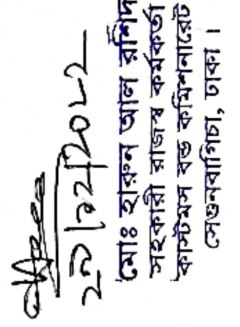 মোঃ হারুন আল রশিদ
সহকারী রাজস্ব কর্মকর্তা
কাস্টমস বন্ড কমিশনারেট
সেগুনবাগিচা, ঢাকা ।